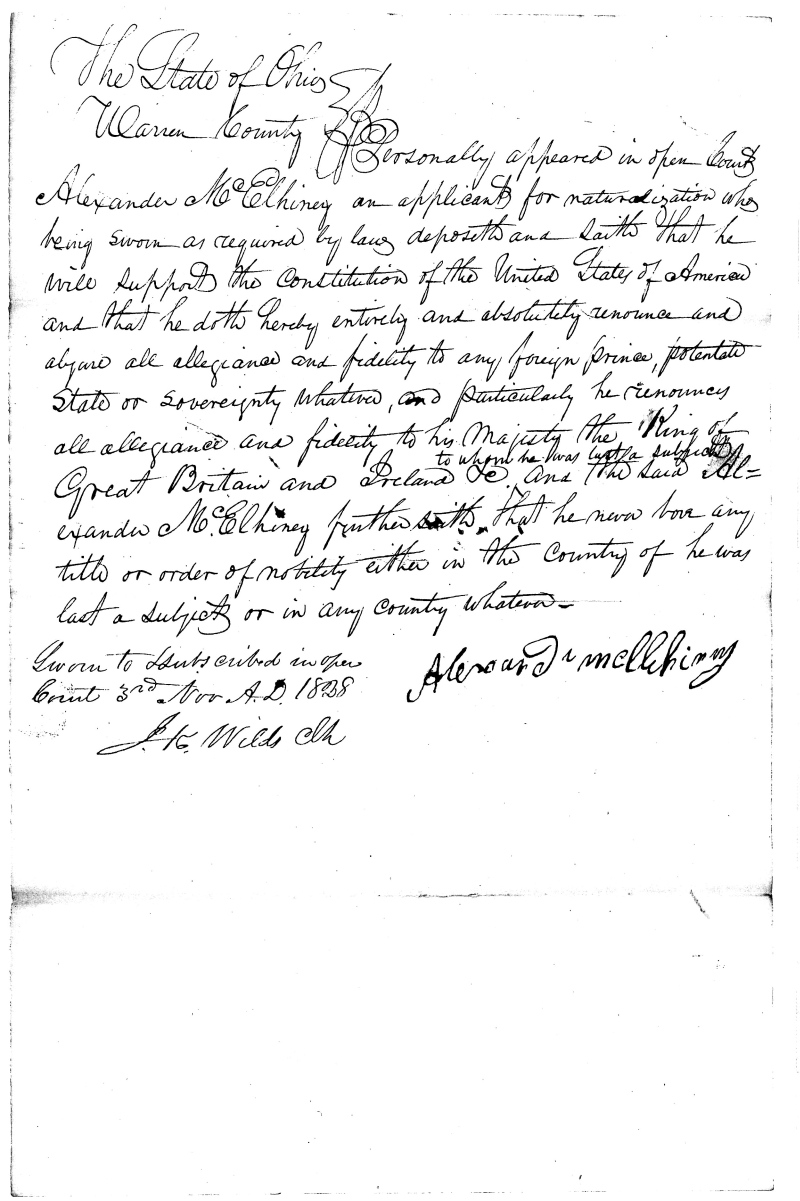 The State of Ohio
Warren County
Personally appeared in open Court
Alexander McElhiney an applicant for naturalization who
being sworn as required by law deposeth and saith that he
will support the constitution of the United States of America
and that he doth hereby entirely and absolutely renounce and
abjure all allegiance and fidelity to any foreign prince, potentate
State or sovereignty whatever, and particularly he renounces
all allegiance and fidelity to his Majesty the King of
to whom he was last a subject
Great Britain and Ireland &c. and the said Al=
exander McElhiney further saith that he never bore any
title or order of nobility either in the country of he was
last a subject or in any country whatever
Sworn to & subscribed in open
Court 3rd Nov A.D. 1838
Alexandr mcElhinny
J. K. Wilds Clk